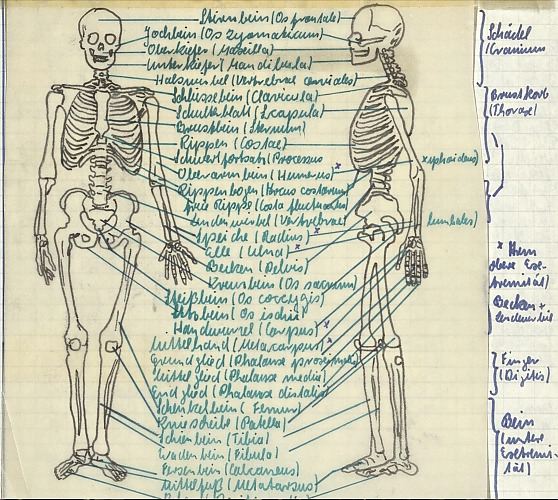 Stirnbein (Os frontale)
Jochbein (Os zygomaticum)
Oberkiefer (Maxilla)
Unterkiefer (Mandibula)
Halswirbel (Vertebrae cervicales)
Schlüsselbein (Clavicula)
Schulterblatt (Scapula)
Brustbein (Sternum)
Rippen (Costae)
Schwertfortsatz (Processus xiphoideus)
Oberarmbein (Humerus) x
Rippenbogen (Arcus costarum)
freie Rippe (Costa fluctuans)
Lendenwirbel (Vertebrae lumbales)
Speiche (Radius) x
Elle (Ulna) x
Becken (Pelvis)
Kreuzbein (Os sacrum)
Steißbein (Os coccygis)
Sitzbein (Os ischii)
Handwurzel (Carpus) x
Mittelhand (Metacarpus) x
Grundglied (Phalanx proximalis)
Mittelglied (Phalanx media)
Endglied (Phalanx distalis)
Schenkelbein (Femur)
Kniescheibe (Patella)
Schienbein (Tibia)
Wadenbein (Fibula)
Fersenbein (Calcaneus)
Mittelfuß (Metatarsus)
Schädel
(Cranium)
Brustkorb
(Thorax)
x
obere Exe-
tremität)
Becken +
Lendenwirbel
Finger
(Digitis)
Bein
(untere
Extremi-
tät)